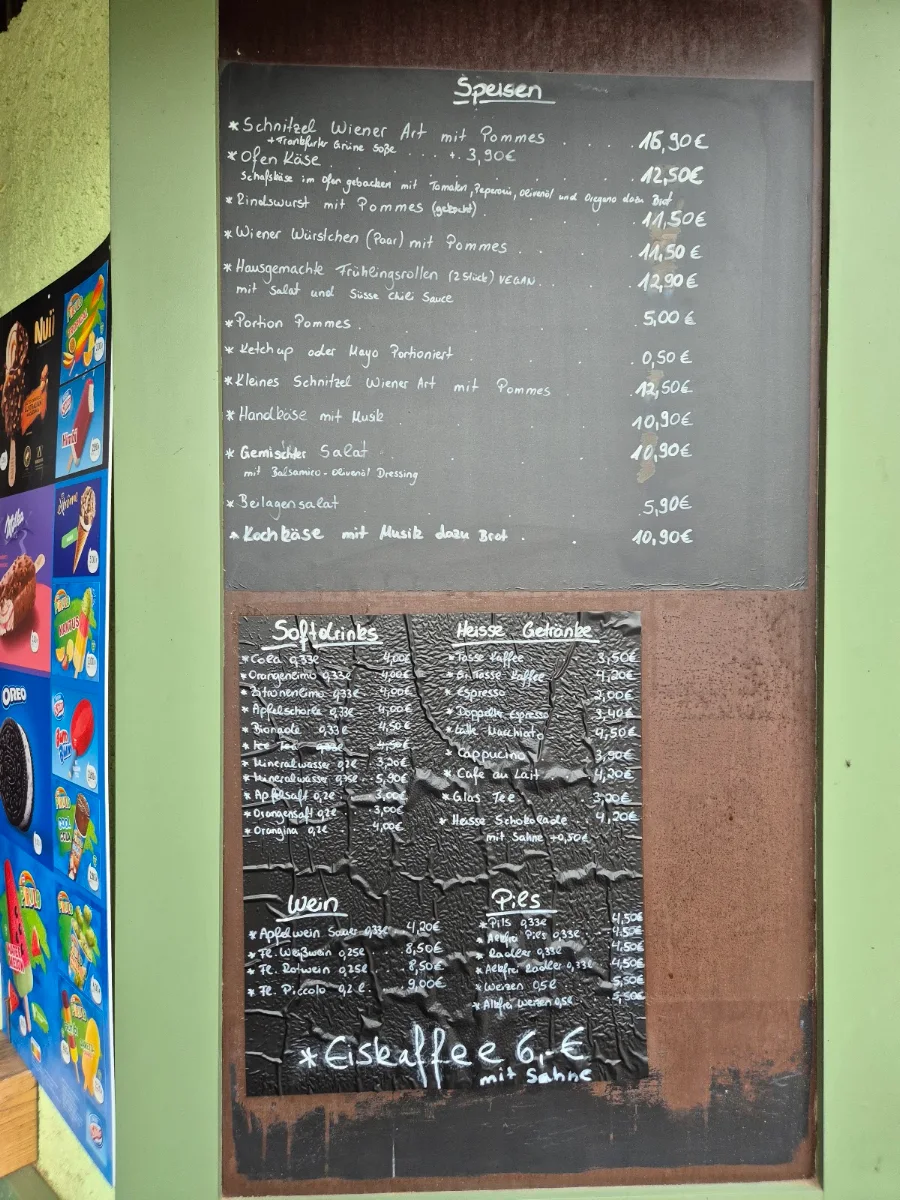 Speisen
* Schnitzel Wiener Art mit Pommes . . . 16,90€
+ Frankfurter Grüne Soße . . . . +. 3,90€
* Ofen Käse . . . . 12,50€
Schafskäse im Ofen gebacken mit Tomaten, Peperoni, Olivenöl und Oregano dazu Brot
* Rindswurst mit Pommes (gekocht) . . . 11,50€
* Wiener Würstchen (Paar) mit Pommes . . . 11,50€
* Hausgemachte Frühlingsrollen (2 Stück) VEGAN . . . 12,90€
mit Salat und Süsse Chili Sauce
* Portion Pommes . . . . 5,00€
* Ketchup oder Mayo Portioniert . . . 0,50€
* Kleines Schnitzel Wiener Art mit Pommes . . 12,50€
* Handkäse mit Musik . . . . 10,90€
* Gemischter Salat . . . . 10,90€
mit Balsamico-Olivenöl Dressing
* Beilagensalat . . . . 5,90€
* Kochkäse mit Musik dazu Brot . . 10,90€
Softdrinks
* Cola 0,33l 4,00€
* Orangenlimo 0,33l 4,00€
* Zitronenlimo 0,33l 4,00€
* Apfelschorle 0,33l 4,00€
* Bionade 0,33l 4,50€
* Ice Tea 4,50€
* Mineralwasser 0,2l 3,20€
* Mineralwasser 0,75l 5,90€
* Apfelsaft 0,2l 3,00€
* Orangensaft 0,2l 3,00€
* Orangina 0,2l 4,00€
Heisse Getränke
* Tasse Kaffee 3,50€
* Gr. Tasse Kaffee 4,20€
* Espresso 2,00€
* Doppelter Espresso 3,40€
* Latte Macchiato 4,50€
* Cappucino 3,90€
* Cafe au Lait 4,20€
* Glas Tee 3,00€
* Heisse Schokolade 4,20€
mit Sahne +0,50€
Wein
* Apfelwein Sauer 0,33l 4,20€
* Fl. Weißwein 0,25l 8,50€
* Fl. Rotwein 0,25l 8,50€
* Fl. Piccolo 0,2l 9,00€
Pils
* Pils 0,33l 4,50€
* Alkfrei Pils 0,33l 4,50€
* Radler 0,33l 4,50€
* Alkfrei Radler 0,33l 4,50€
* Weizen 0,5l 5,50€
* Alkfrei Weizen 0,5l 5,50€
* Eiskaffee 6,-€
mit Sahne
Nuii
Milka
OREO